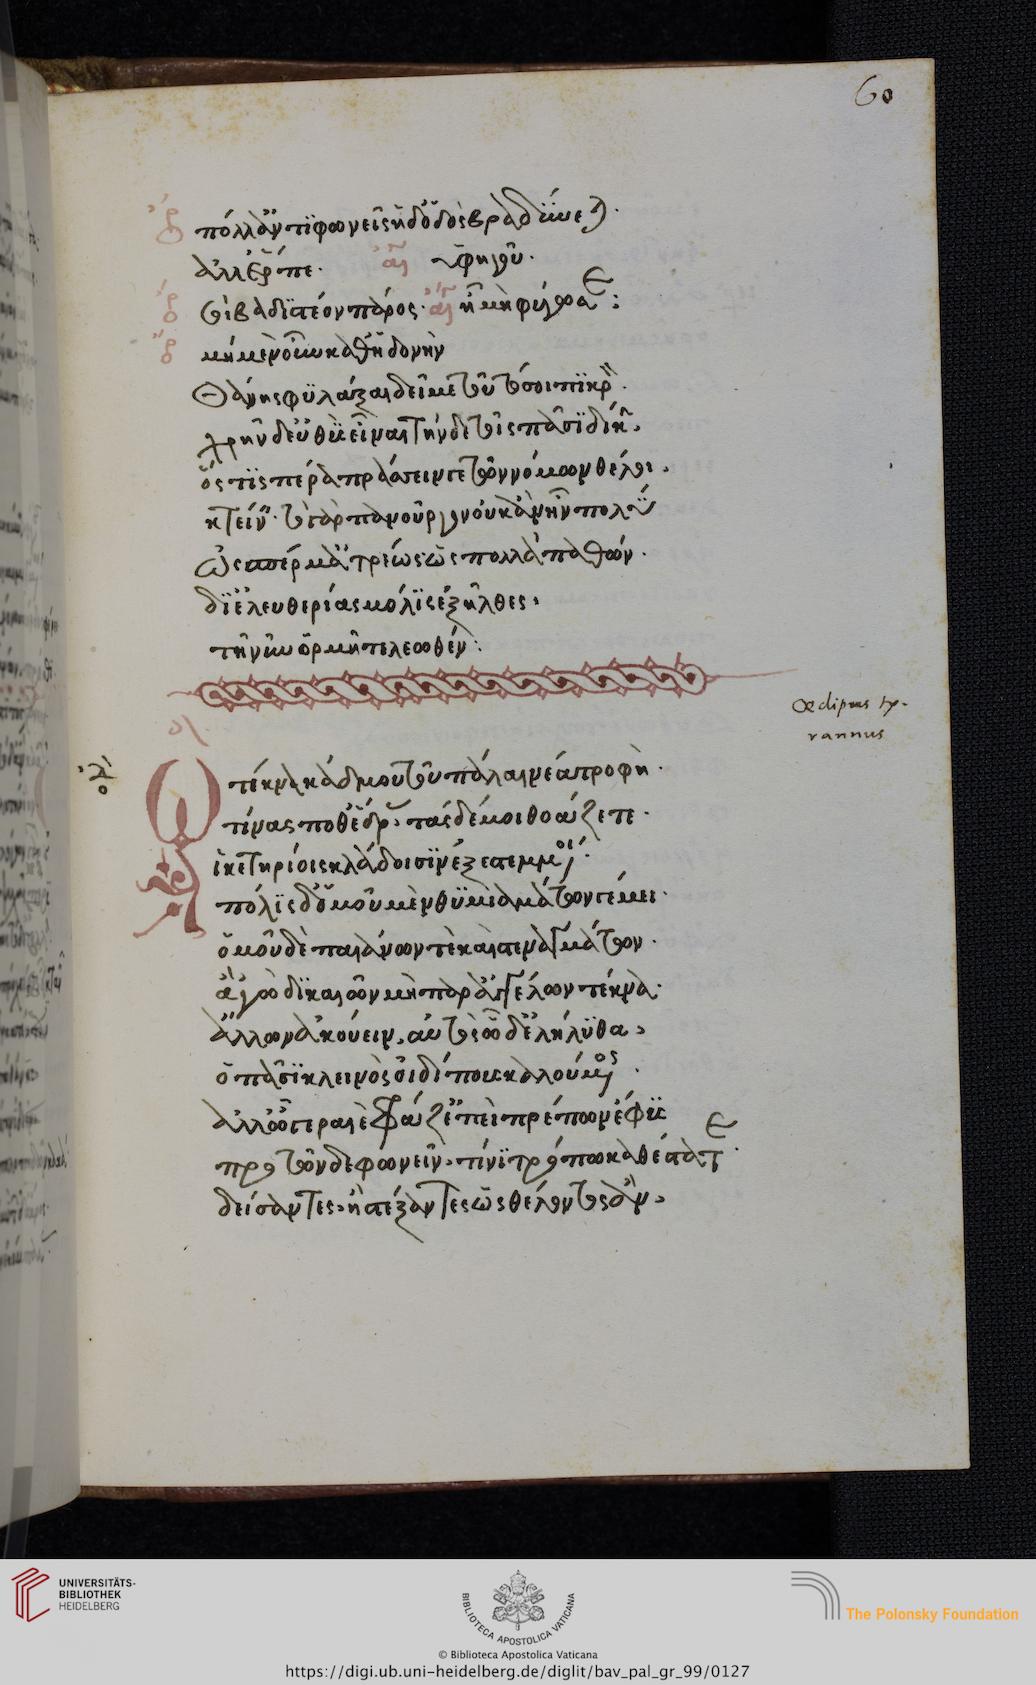 60
πόλλ' ἀντιφωνεῖς ἡ δ' ὁδὸς βραδύνεται.
ἀλλ' ἕρπε. αἴγ ὑφηγοῦ.
σοὶ βαδιστέον πάρος. αἴγ ἦ μὴ φύγω σε:
μὴ μὲν οὖν καθ' ἡδονὴν
θάνῃς φυλάξαι δεῖ με τοῦτό σοι πικρόν.
χρῆν δ' εὐθὺς εἶναι τήνδε τοῖς πᾶσι δίκην,
ὅστις πέρα πράσσειν γε τῶν νόμων θέλει,
κτείνειν. τὸ γὰρ πανοῦργον οὐκ ἂν ἦν πολύ
ὦ σπέρμ' ἀτρέως ὡς πολλὰ παθὸν.
δι' ἐλευθερίας μόλις ἐξῆλθες,
τῇ νῦν ὁρμῇ τελεωθέν:
Œdipus ty-
rannus
Ὦ τέκνα κάδμου τοῦ πάλαι νέα τροφὴ.
τίνας ποθ' ἕδρας τάσδε μοι θοάζετε.
ἱκετηρίοις κλάδοισιν ἐξεστεμμένοι.
πόλις δ' ὁμοῦ μὲν θυμιαμάτων γέμει.
ὁμοῦ δὲ παιάνων τὲ καὶ στεναγμάτων.
ἁγὼ δικαιῶν μὴ παρ' ἀγγέλων τέκνα.
ἄλλων ἀκούειν, αὐτὸς ὧδ' ἐλήλυθα,
ὁ πᾶσι κλεινὸς οἰδίπους καλούμενος.
ἀλλ' ὦ γεραιὲ φράζ' ἐπεὶ πρέπων ἔφυς
πρὸ τῶνδε φωνεῖν, τίνι τρόπω καθέστατε.
δείσαντες, ἢ στέξαντες ὡς θέλοντος ἂν,
UNIVERSITÄTS-
BIBLIOTHEK
HEIDELBERG
BIBLIOTECA APOSTOLICA VATICANA
The Polonsky Foundation
© Biblioteca Apostolica Vaticana
https://digi.ub.uni-heidelberg.de/diglit/bav_pal_gr_99/0127